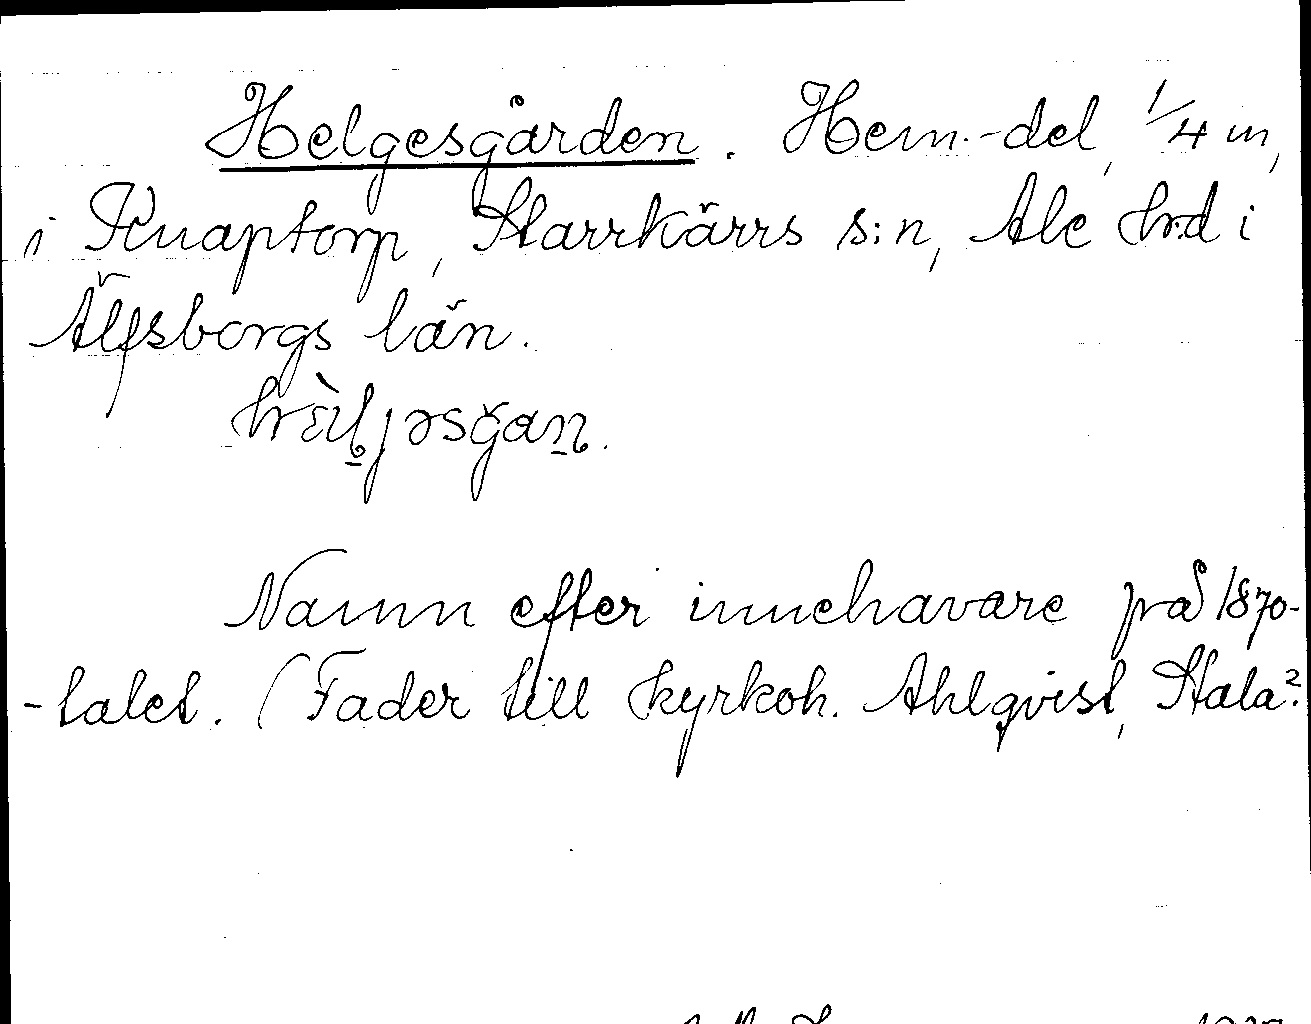 Helgesgården. Hem.-del, 1/4 m,
i Knaptorp, Starrkärrs s:n, Ale hrd i
Älfsborgs län.
Namn efter innehavare på 1870-
-talet. (Fader till kyrkoh. Ahlqvist, Stala?